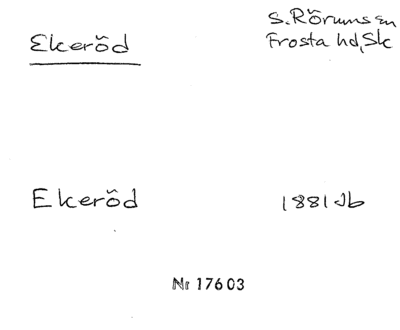 Ekeröd
S. Rörums sn
Frosta hd, Sk
Ekeröd
1881 Jb
Nr 17603